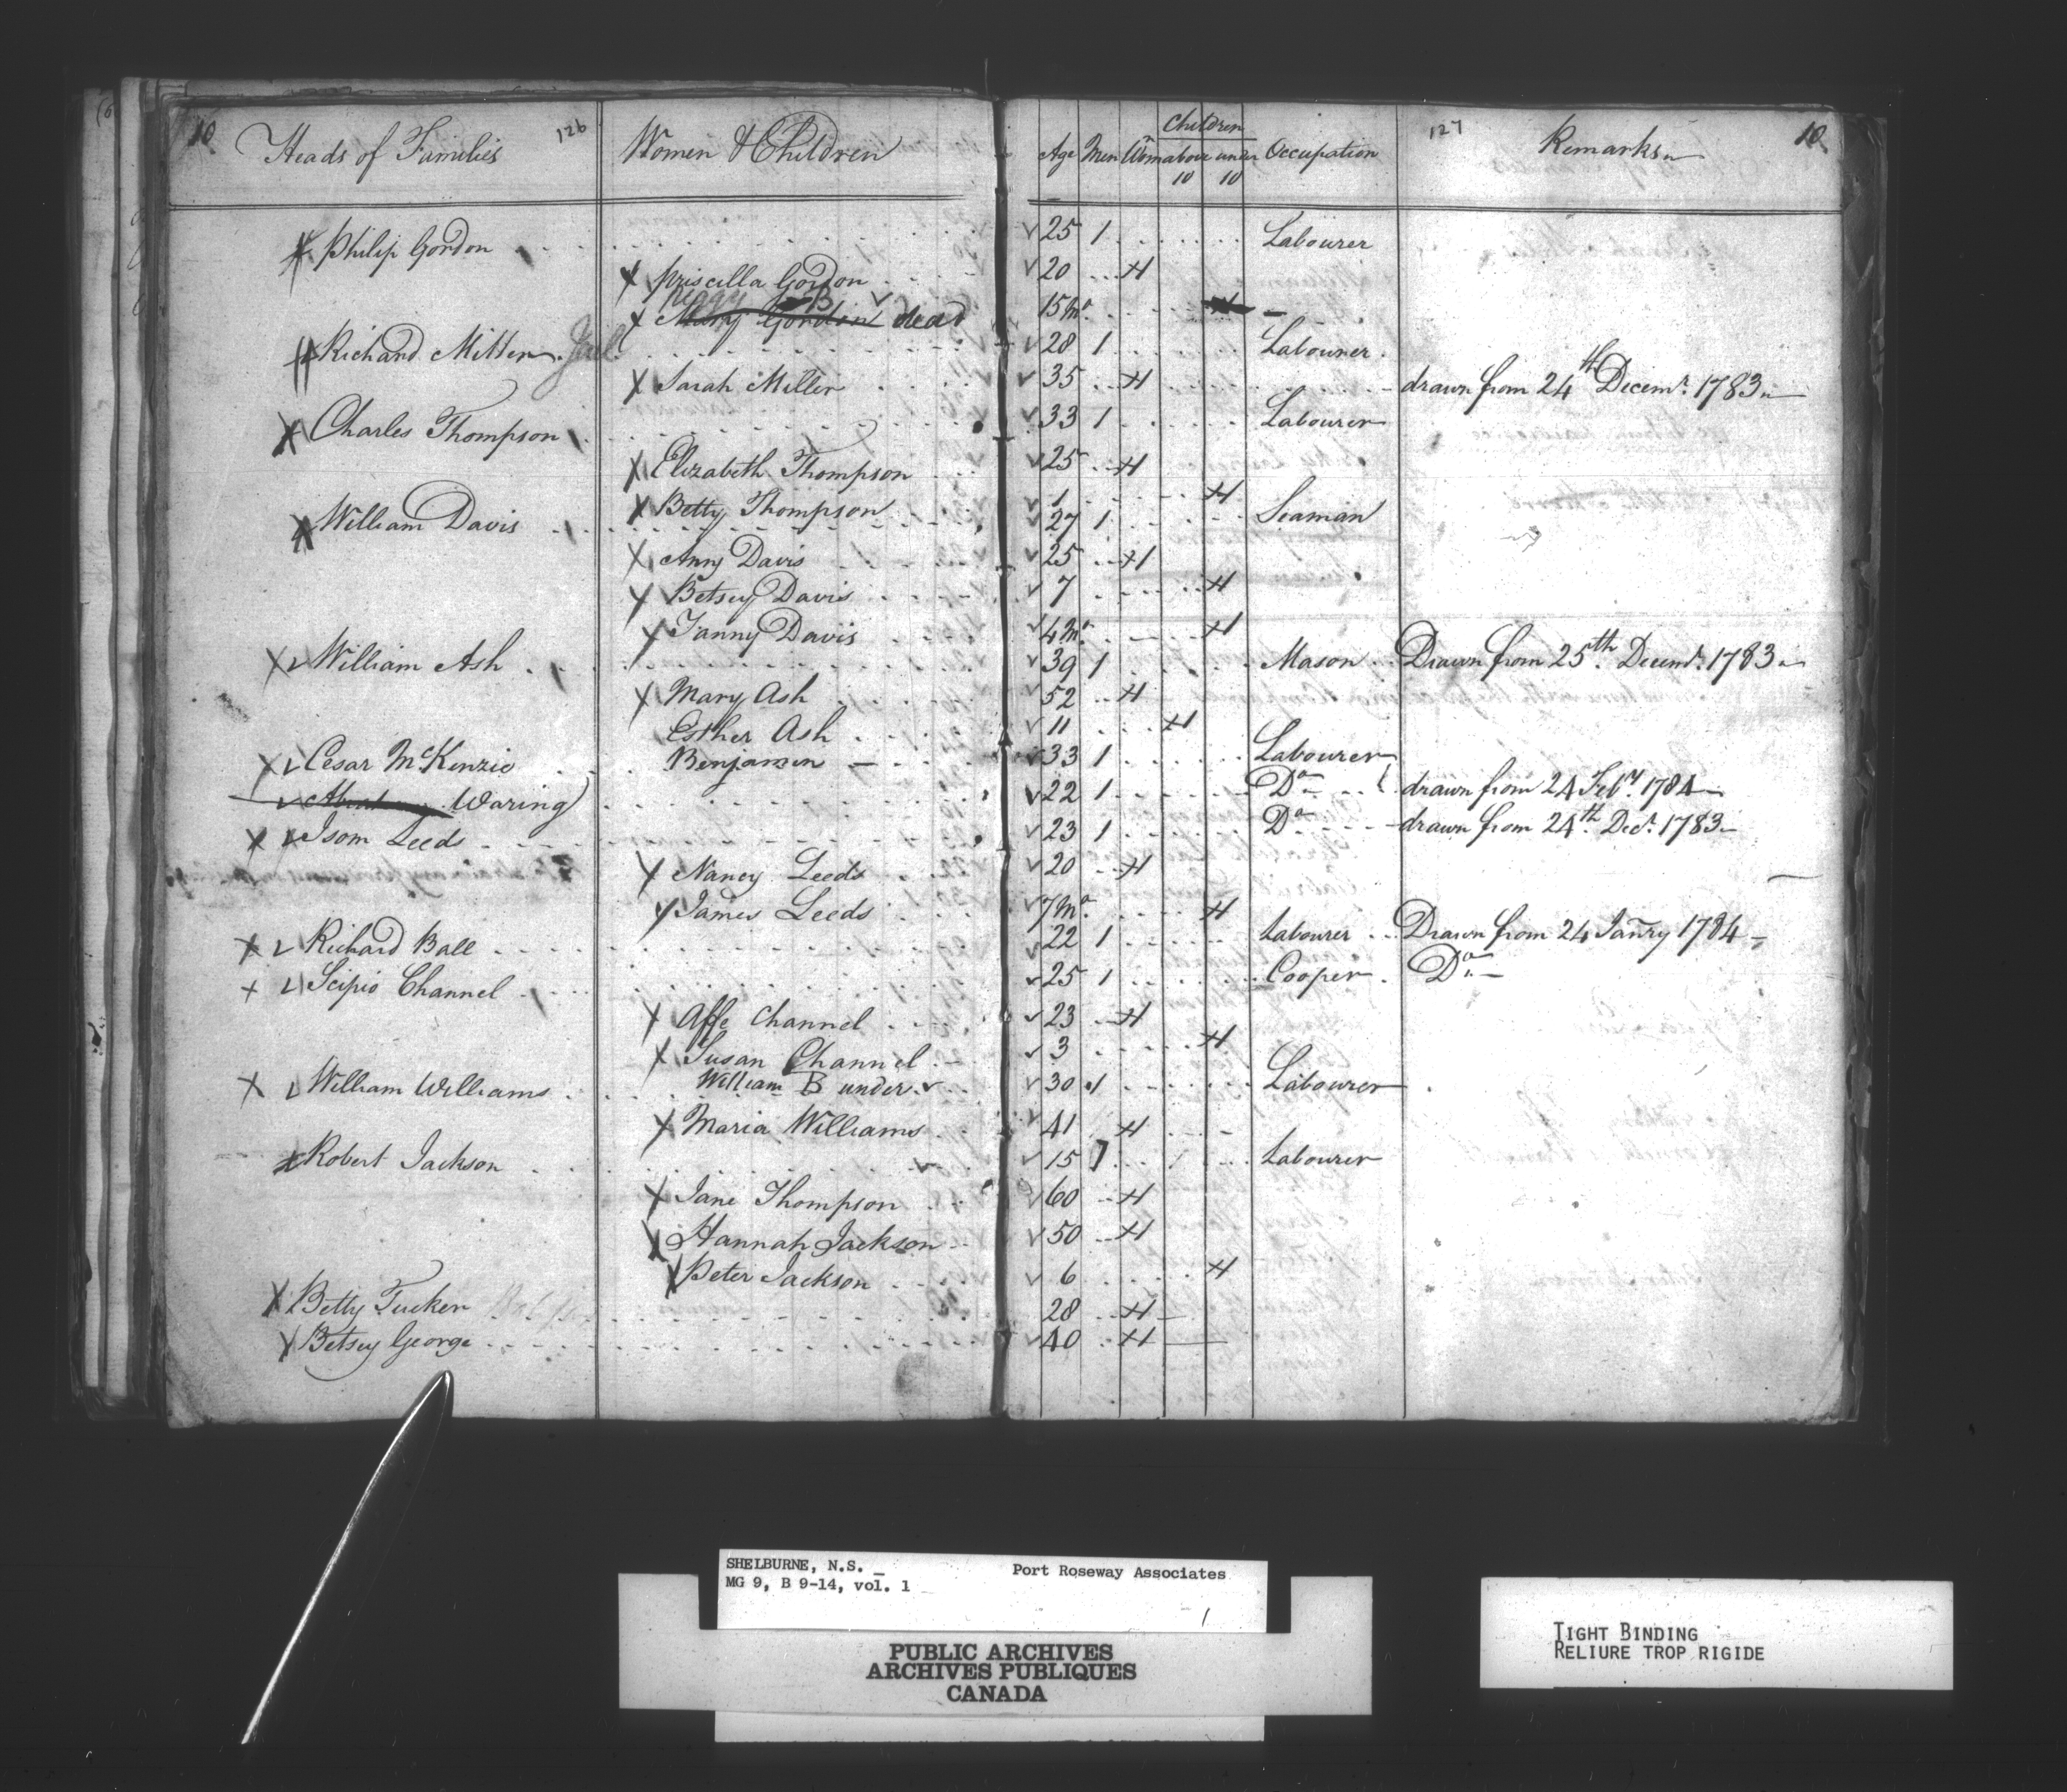 10 Heads of Families 126 Women & Children Age Men Wom̃ Children above 10 under 10 Occupation 127 Remarks 10
Philip Gordon 25 1 Labourer
Priscilla Gordon 20 1
Peggy B
Mary Gordon dead 15 Mo.
Richard Miller 28 1 Labourer
Sarah Miller 35 1 drawn from 24th Decemr. 1783
Charles Thompson 33 1 Labourer
Elizabeth Thompson 25 1
Betty Thompson 1 1
William Davis 27 1 Seaman
Anny Davis 25 1
Betsey Davis 7 1
Fanny Davis 4 Mo. 1
William Ash 39 1 Mason Drawn from 25th Decemr. 1783
Mary Ash 52 1
Esther Ash 11 1
Cesar McKenzie 33 1 Labourer
Benjamin
Waring 22 1 Do drawn from 24 Feby. 1784
Isom Leeds 23 1 Do drawn from 24th Decr. 1783
Nancy Leeds 20 1
James Leeds 7 Mo. 1
Richard Ball 22 1 Labourer Drawn from 24 Janry 1784
Scipio Channel 25 1 Cooper Do
Affe Channel 23 1
Susan Channel 3 1
William B under
William Williams 30 1 Labourer
Maria Williams 41 1
Robert Jackson 15 1 Labourer
Jane Thompson 60 1
Hannah Jackson 50 1
Peter Jackson 6 1
Betty Tucker 28 1
Betsey George 40 1
SHELBURNE, N.S. Port Roseway Associates
MG 9, B 9-14, vol. 1
1
PUBLIC ARCHIVES
ARCHIVES PUBLIQUES
CANADA
TIGHT BINDING
RELIURE TROP RIGIDE